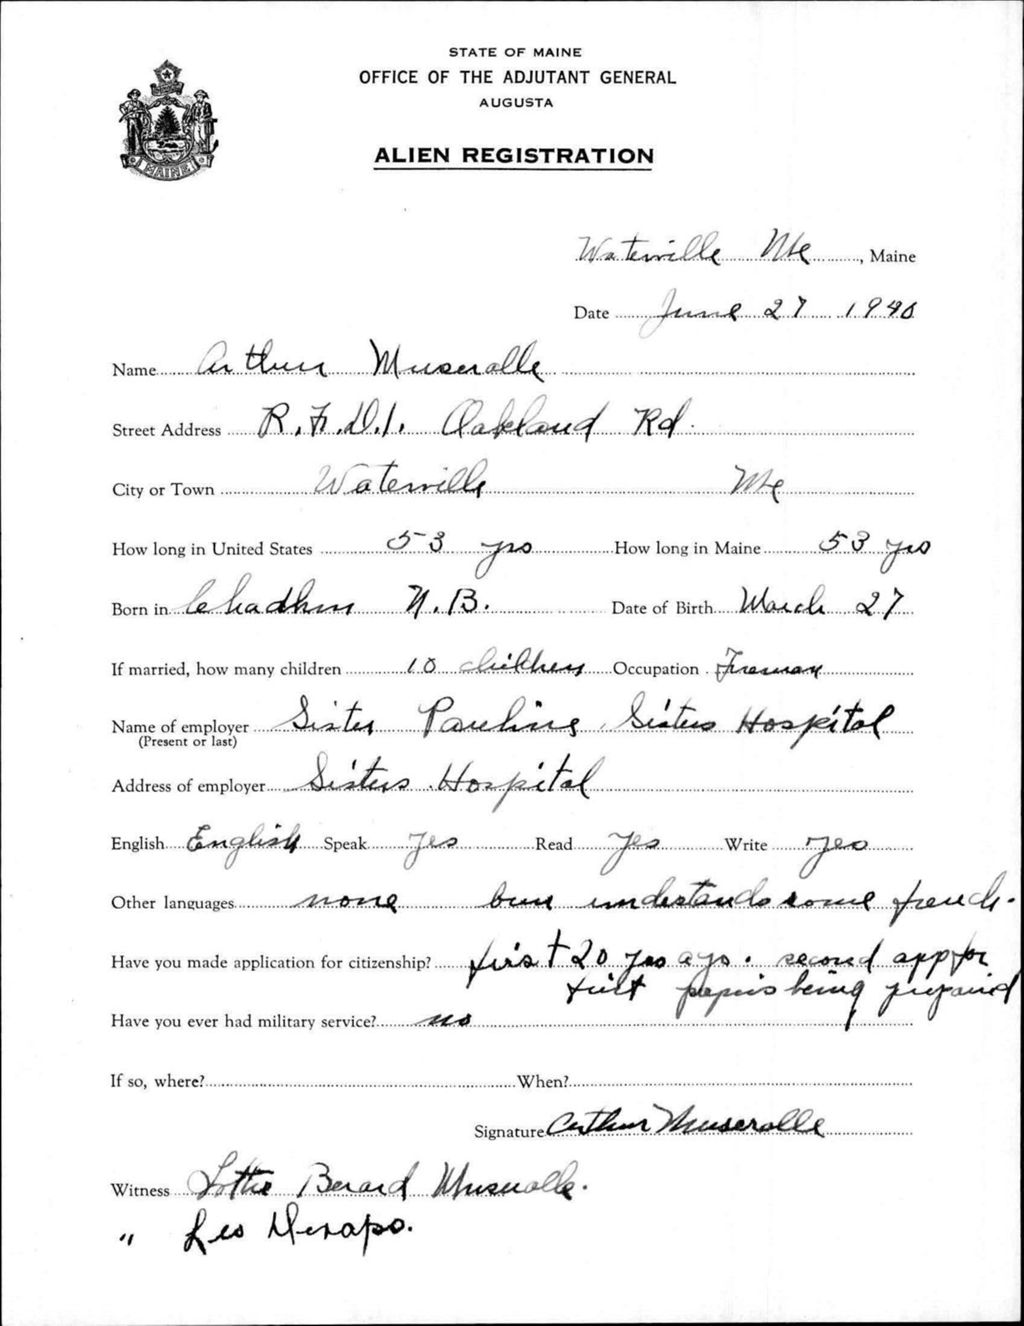 STATE OF MAINE
OFFICE OF THE ADJUTANT GENERAL
AUGUSTA
ALIEN REGISTRATION
MAINE
Waterville Me, Maine
Date June 27 1940
Name Arthur Museralle
Street Address R.F.D.1. Oakland Rd.
City or Town Waterville Me
How long in United States 53 yrs How long in Maine 53 yrs
Born in Chadhm N.B. Date of Birth March 27
If married, how many children 10 children Occupation Fireman
Name of employer Sister Pauline, Sisters Hospital
(Present or last)
Address of employer Sisters Hospital
English English Speak yes Read yes Write yes
Other languages none understands some french.
Have you made application for citizenship? first 20 yrs ago. second app for
first papers being prepared
Have you ever had military service? no
If so, where? When?
Signature Arthur Museralle
Witness Lottie Berard Museralle.
" Leo